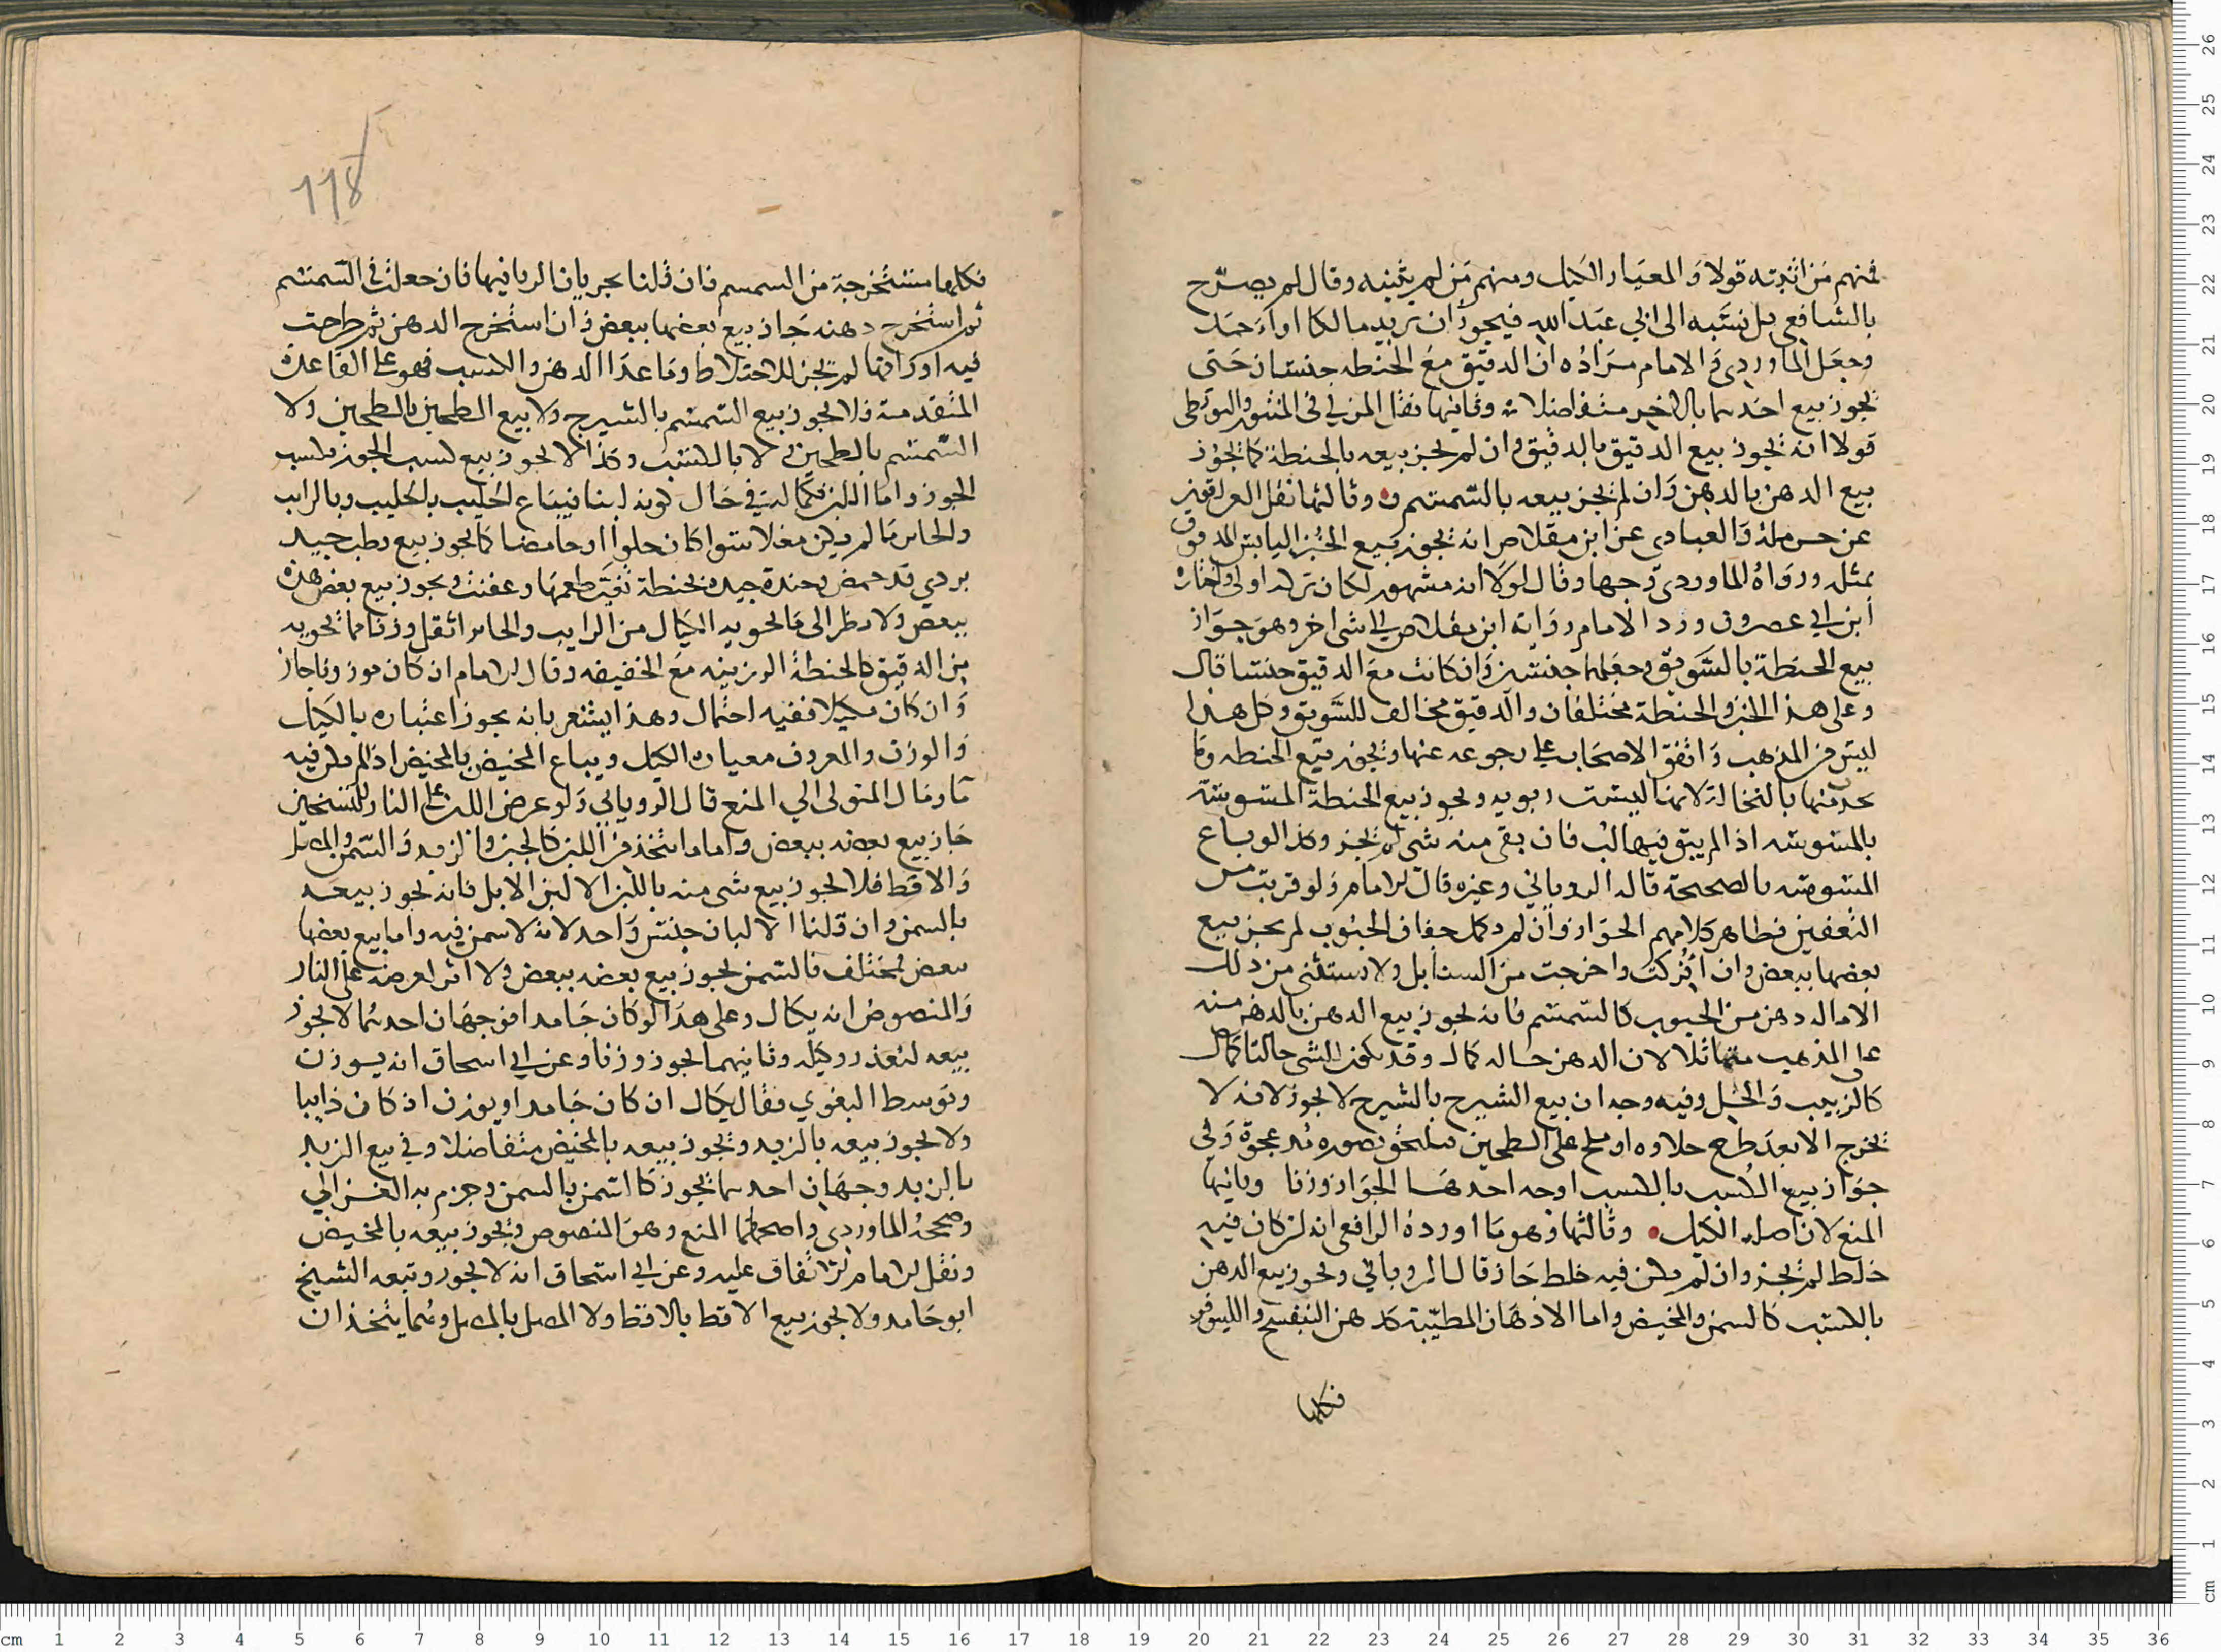 فمنهم من اثبته قولا والمعيار الكيل ومنهم من لم يثبته وقال لم يصرح
بالشافعي بل نسبه الى ابي عبد الله فيجوز ان يريد مالكا او احمد
وجعل الماوردي والامام مراده ان الدقيق مع الحنطه جنسان حتى
يجوز بيع احدهما بالاخر متفاضلا وثانيها نقل المزني في المنثور والبويطي
قولا انه يجوز بيع الدقيق بالدقيق وان لم يجز بيعه بالحنطة كما يجوز
بيع الدهن بالدهن وان لم يجز بيعه بالسمسم وثالثها نقل العراقيون
عن حرملة والعبادي عن ابن مقلاص انه يجوز بيع الخبز اليابس المدقوق
بمثله ورواه الماوردي وجها وقال لولا انه مشهور لكان تركه اولى واختاره
ابن ابي عصرون ورد الامام رواية ابن مقلاص الى شي اخر وهو جواز
بيع الحنطة بالسويق وجعلهما جنسين وان كانت مع الدقيق جنسا قال
وعلى هذا الخبز والحنطة مختلفان والدقيق مخالف للسويق وكل هذا
ليس من المذهب واتفق الاصحاب على رجوعه عنها ويجوز بيع الحنطه وما
يحدث منها بالنخالة لانها ليست ربويه ويجوز بيع الحنطة المسوسة
بالمسوسه اذا لم يبق فيها لب فان بقي منه شي لم يجز وكذا لو باع
المسوسه بالصحيحة قاله الروياني وغيره قال الامام ولو قربت من
التعفين فظاهر كلامهم الجواز وان لم يكمل جفاف الحبوب لم يجز بيع
بعضها ببعض وان افركت واخرجت من السنابل ولا يستثنى من ذلك
الا ماله دهن من الحبوب كالسمسم فانه يجوز بيع الدهن بالدهن منه
على المذهب متماثلا لان الدهن حاله كمال وقد يكون للشي حالتا كمال
كالزبيب والخل وفيه وجه ان بيع الشيرج بالشيرج لا يجوز لانه لا
يخرج الا بعد طرح حلاوه او ملح على الطحين فيلحق بصوره مد عجوة وفي
جواز بيع الكسب بالكسب اوجه احدها الجواز وزنا وثانيها
المنع لان اصله الكيل وثالثها وهو ما اورده الرافعي انه ان كان فيه
خلط لم يجز وان لم يكن فيه خلط جاز قال الروياني ويجوز بيع الدهن
بالكسب كالسمن والمخيض واما الادهان المطيبة كدهن البنفسج والنيلوفر
فكلها
118
فكلها مستخرجة من السمسم فان قلنا بجريان الربا فيها فان جعلت في السمسم
ثم استخرج دهنه جاز بيع بعضها ببعض وان استخرج الدهن ثم طرحت
فيه اوراقها لم يجز للاختلاط وما عدا الدهن والكسب فهو على القاعدة
المتقدمة فلا يجوز بيع السمسم بالشيرج ولا بيع الطحين بالطحين ولا
السمسم بالطحين ولا بالكسب وكذا لا يجوز بيع لب الجوز بلب
الجوز واما اللبن فكماله في حال كونه لبنا فيباع الحليب بالحليب وبالرايب
والخاثر ما لم يكن مغلا سوا كان حلوا او حامضا كما يجوز بيع رطب جيد
بردي قد حمض وحنطة جيدة بحنطة تغير طعمها وعفنت ويجوز بيع بعض هذه
ببعض ولا نظر الى ما يحويه المكيال من الرايب والخاثر اثقل وزنا مما يحويه
من الدقيق كالحنطة الرزينه مع الخفيفه وقال الامام ان كان موزونا جاز
وان كان مكيلا ففيه احتمال وهذا يشعر بانه يجوز اعتباره بالكيل
والوزن والمعروف معياره الكيل ويباع المخيض بالمخيض اذا لم يكن فيه
ما ومال المتولي الى المنع قال الروياني ولو عرض اللبن على النار للتسخين
جاز بيع بعضه ببعض واما ما اتخذ من اللبن كالجبن والزبد والسمن والمصل
والاقط فلا يجوز بيع شي منه باللبن الا لبن الابل فانه يجوز بيعه
بالسمن وان قلنا الالبان جنس واحد لانه لا سمن فيه واما بيع بعضها
ببعض فمختلف فالسمن يجوز بيع بعضه ببعض ولا اثر لعرضه على النار
والمنصوص انه يكال وعلى هذا لو كان جامدا فوجهان احدهما لا يجوز
بيعه لتعذر كيله وثانيهما يجوز وزنا وعن ابي اسحاق انه يوزن
وتوسط البغوي فقال يكال ان كان جامدا ويوزن ان كان ذايبا
ولا يجوز بيعه بالزبد ويجوز بيعه بالمخيض متفاضلا وفي بيع الزبد
بالزبد وجهان احدهما يجوز كالسمن بالسمن وجزم به الغزالي
وصححه الماوردي واصحهما المنع وهو المنصوص ويجوز بيعه بالمخيض
ونقل الامام الاتفاق عليه وعن ابي اسحاق انه لا يجوز وتبعه الشيخ
ابو حامد ولا يجوز بيع الاقط بالاقط ولا المصل بالمصل وهما يتخذان